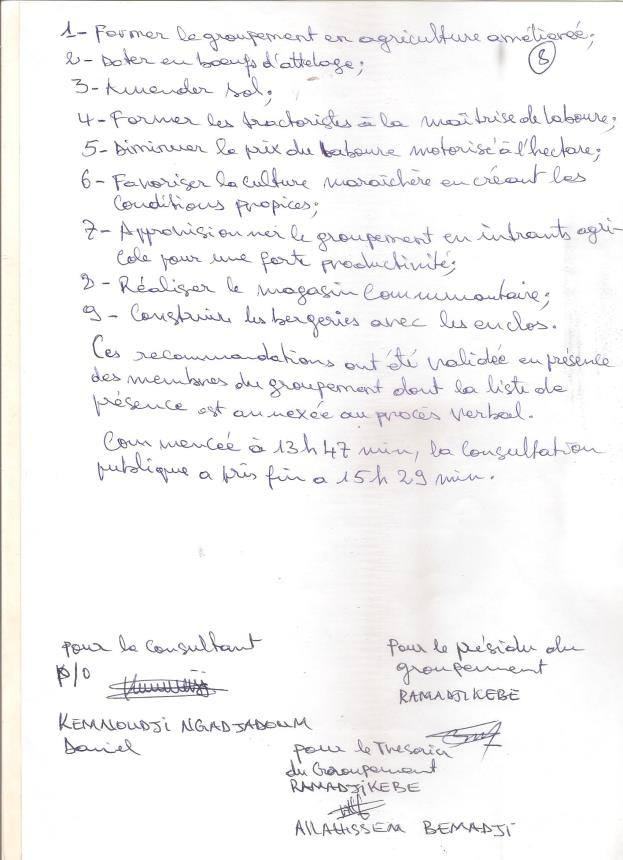 1- Former le groupement en agriculture améliorée;
8
2- Doter en boeufs d'attelage;
3- Amender sol;
4- Former les tractoristes à la maîtrise de laboure;
5- Diminuer le prix du laboure motorisé à l'hectare;
6- Favoriser la culture maraîchère en créant les
conditions propices;
7- Approvisionner le groupement en intrants agri-
cole pour une forte productivité;
8- Réaliser le magasin Communautaire;
9- Construire les bergeries avec les enclos.
Ces recommandations ont été validée en présence
des membres du groupement dont la liste de
présence est annexée au procès verbal.
Commencée à 13h47 min, la Consultation
publique a pris fin a 15h 29 min.
pour le Consultant
P/O
KEMNOUDJI NGADJADOUM
Daniel
Pour le présidu du
groupement
RAMADJIKEBE
pour le Thesorier
du Groupement
RAMADJIKEBE
AllAHISSEM BEMADJI